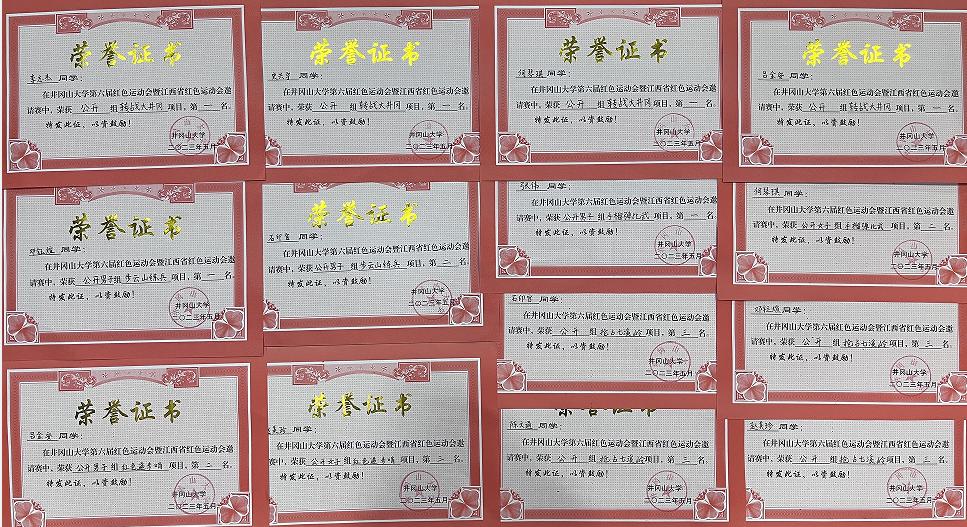 荣誉证书
李志杰 同学：
在井冈山大学第六届红色运动会暨江西省红色运动会邀
请赛中，荣获 公开 组 转战大井冈 项目，第 一 名。
特发此证，以资鼓励！
井冈山大学
二〇二三年五月
荣誉证书
同学：
在井冈山大学第六届红色运动会暨江西省红色运动会邀
请赛中，荣获 公开 组 转战大井冈 项目，第 一 名。
特发此证，以资鼓励！
井冈山大学
二〇二三年五月
荣誉证书
何琴琪 同学：
在井冈山大学第六届红色运动会暨江西省红色运动会邀
请赛中，荣获 公开 组 转战大井冈 项目，第 一 名。
特发此证，以资鼓励！
井冈山大学
二〇二三年五月
荣誉证书
吕金安 同学：
在井冈山大学第六届红色运动会暨江西省红色运动会邀
请赛中，荣获 公开 组 转战大井冈 项目，第 一 名。
特发此证，以资鼓励！
井冈山大学
二〇二三年五月
荣誉证书
邓钰煊 同学：
在井冈山大学第六届红色运动会暨江西省红色运动会邀
请赛中，荣获 公开男子 组 步云山练兵 项目，第 一 名。
特发此证，以资鼓励！
井冈山大学
二〇二三年五月
荣誉证书
石印官 同学：
在井冈山大学第六届红色运动会暨江西省红色运动会邀
请赛中，荣获 公开男子 组 步云山练兵 项目，第 二 名。
特发此证，以资鼓励！
井冈山大学
二〇二三年五月
张伟 同学：
在井冈山大学第六届红色运动会暨江西省红色运动会邀
请赛中，荣获 公开男子 组 手榴弹化武 项目，第 一 名。
特发此证，以资鼓励！
井冈山大学
二〇二三年五月
何琴琪 同学：
在井冈山大学第六届红色运动会暨江西省红色运动会邀
请赛中，荣获 公开女子 组 手榴弹化武 项目，第 二 名。
特发此证，以资鼓励！
井冈山大学
二〇二三年五月
石印官 同学：
在井冈山大学第六届红色运动会暨江西省红色运动会邀
请赛中，荣获 公开 组 抢占七溪岭 项目，第 三 名。
特发此证，以资鼓励！
井冈山大学
二〇二三年五月
邓钰煊 同学：
在井冈山大学第六届红色运动会暨江西省红色运动会邀
请赛中，荣获 公开 组 抢占七溪岭 项目，第 三 名。
特发此证，以资鼓励！
井冈山大学
二〇二三年五月
荣誉证书
吕金安 同学：
在井冈山大学第六届红色运动会暨江西省红色运动会邀
请赛中，荣获 公开男子 组 红色遍查哨 项目，第 二 名。
特发此证，以资鼓励！
井冈山大学
二〇二三年五月
荣誉证书
赵美珍 同学：
在井冈山大学第六届红色运动会暨江西省红色运动会邀
请赛中，荣获 公开女子 组 项目，第 二 名。
特发此证，以资鼓励！
井冈山大学
二〇二三年五月
荣誉证书
同学：
在井冈山大学第六届红色运动会暨江西省红色运动会邀
请赛中，荣获 公开 组 抢占七溪岭 项目，第 三 名。
特发此证，以资鼓励！
井冈山大学
二〇二三年五月
赵美珍 同学：
在井冈山大学第六届红色运动会暨江西省红色运动会邀
请赛中，荣获 公开 组 抢占七溪岭 项目，第 三 名。
特发此证，以资鼓励！
井冈山大学
二〇二三年五月